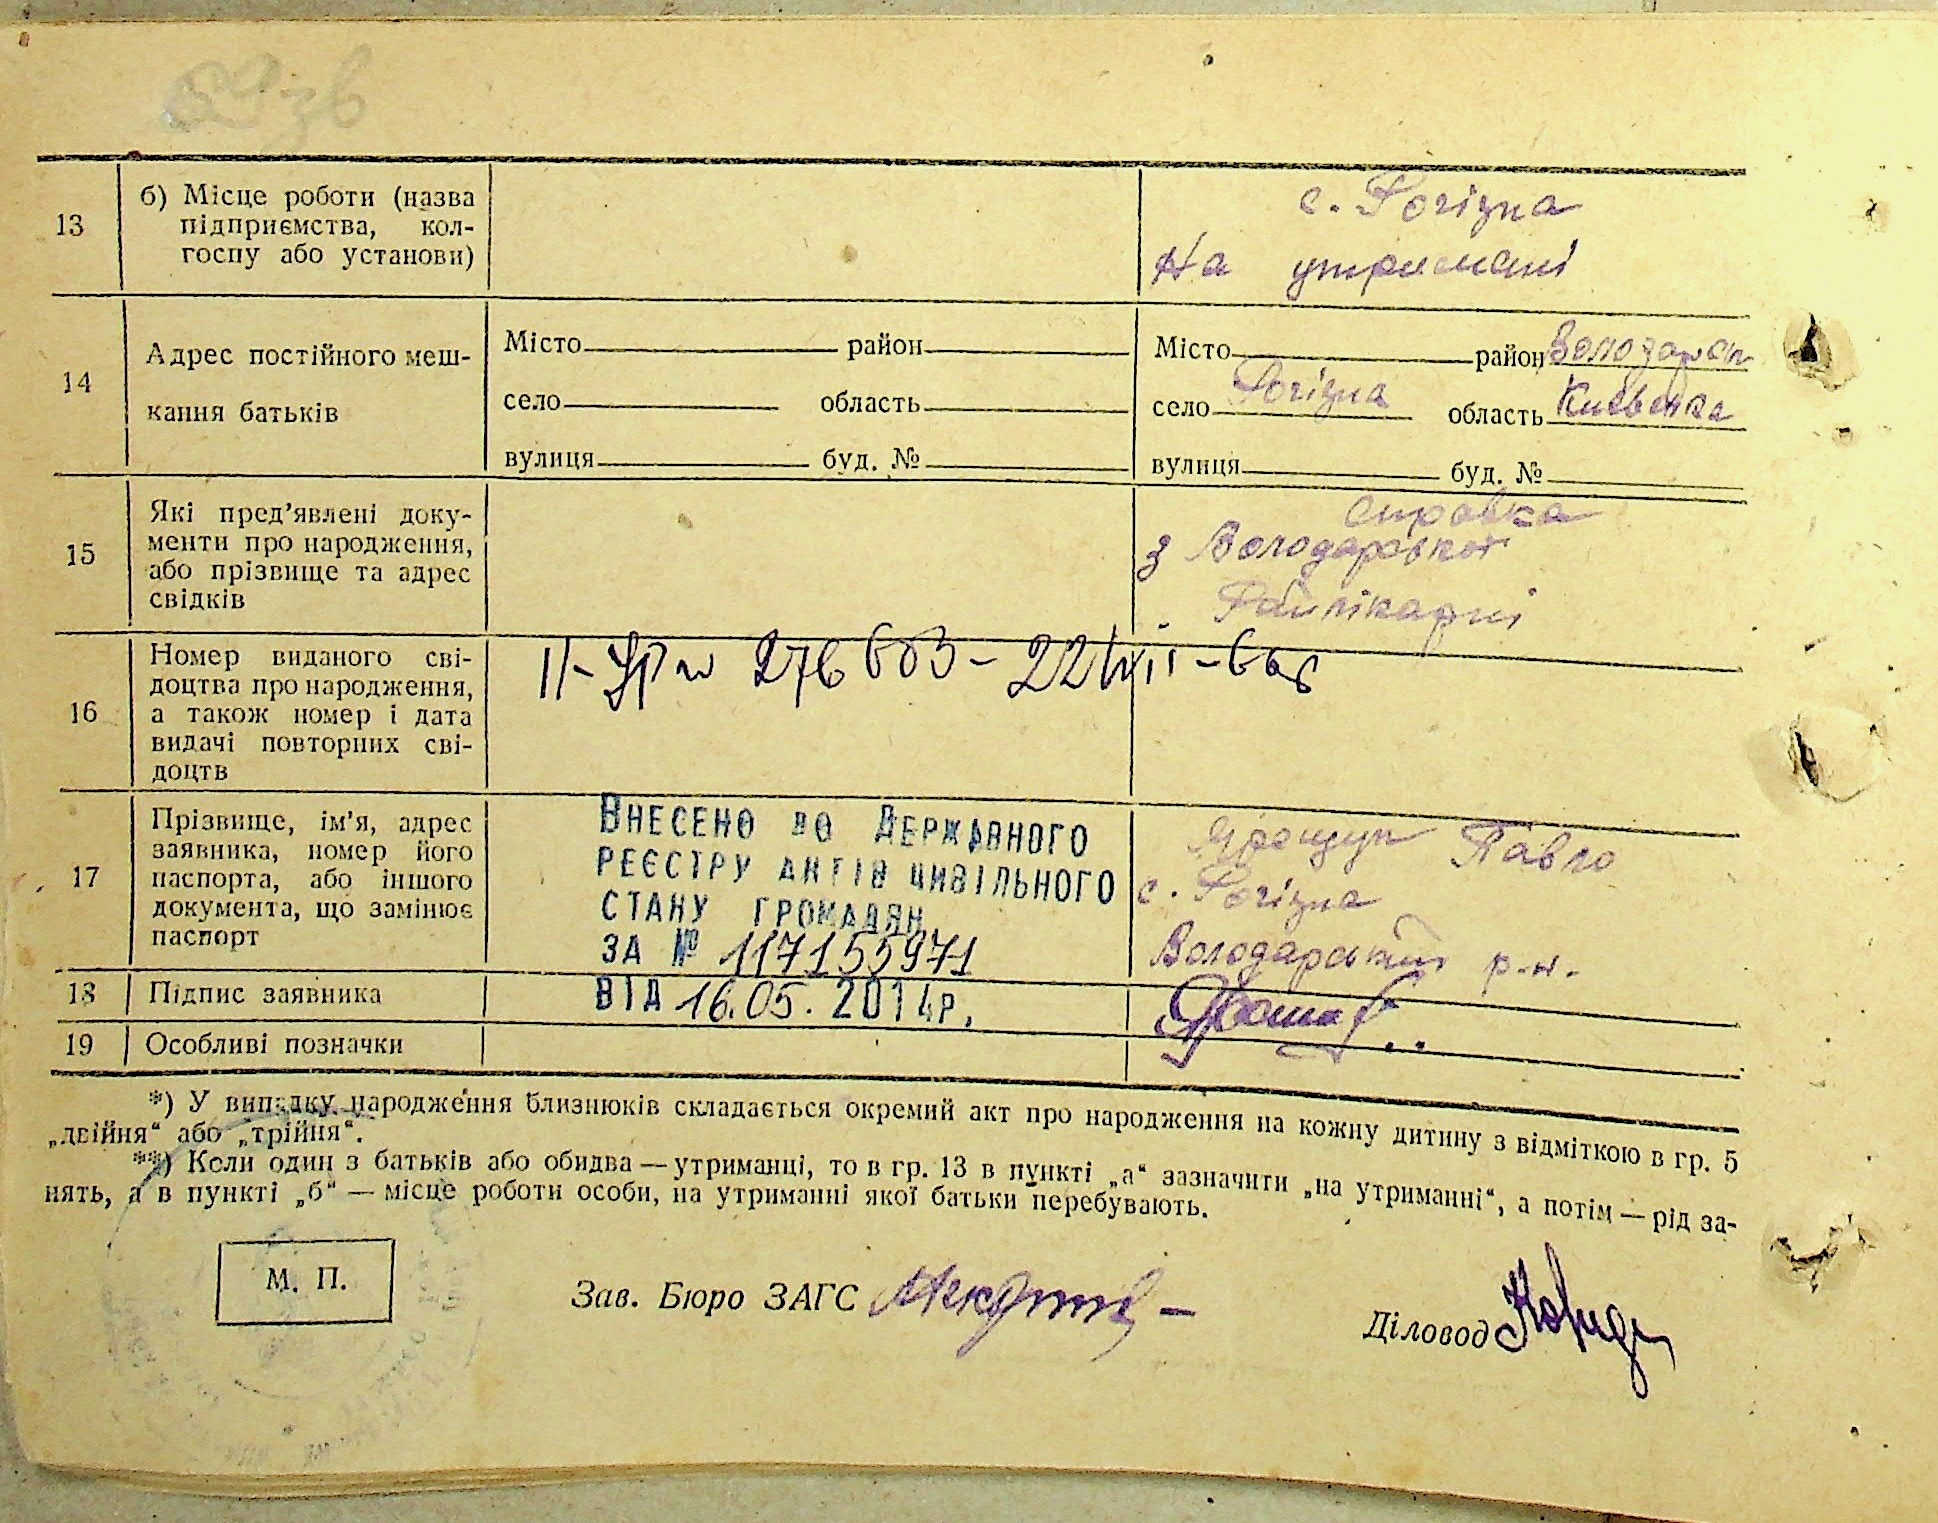 13
б) Місце роботи (назва
підприємства, кол-
госпу або установи)
с. Рогізна
На утримані
14
Адрес постійного меш-
кання батьків
Місто район
село область
вулиця буд. №
Місто район Володарськ
село Рогізна область Київська
вулиця буд. №
15
Які пред'явлені доку-
менти про народження,
або прізвище та адрес
свідків
справка
з Володарської
Райлікарні
16
Номер виданого сві-
доцтва про народження,
а також номер і дата
видачі повторних сві-
доцтв
II-УР № 276603-22/XII-66г
17
Прізвище, ім'я, адрес
заявника, номер його
паспорта, або іншого
документа, що замінює
паспорт
ВНЕСЕНО ДО ДЕРЖАВНОГО
РЕЄСТРУ АКТІВ ЦИВІЛЬНОГО
СТАНУ ГРОМАДЯН
ЗА № 117155971
ВІД 16.05. 2014р.
Ярощук Павло
с. Рогізна
Володарський р-н.
18
Підпис заявника
19
Особливі позначки
*) У випадку народження близнюків складається окремий акт про народження на кожну дитину з відміткою в гр. 5
„двійня“ або „трійня“.
**) Коли один з батьків або обидва — утриманці, то в гр. 13 в пункті „а“ зазначити „на утриманні“, а потім — рід за-
нять, а в пункті „б“ — місце роботи особи, на утриманні якої батьки перебувають.
М. П.
Зав. Бюро ЗАГС
Діловод